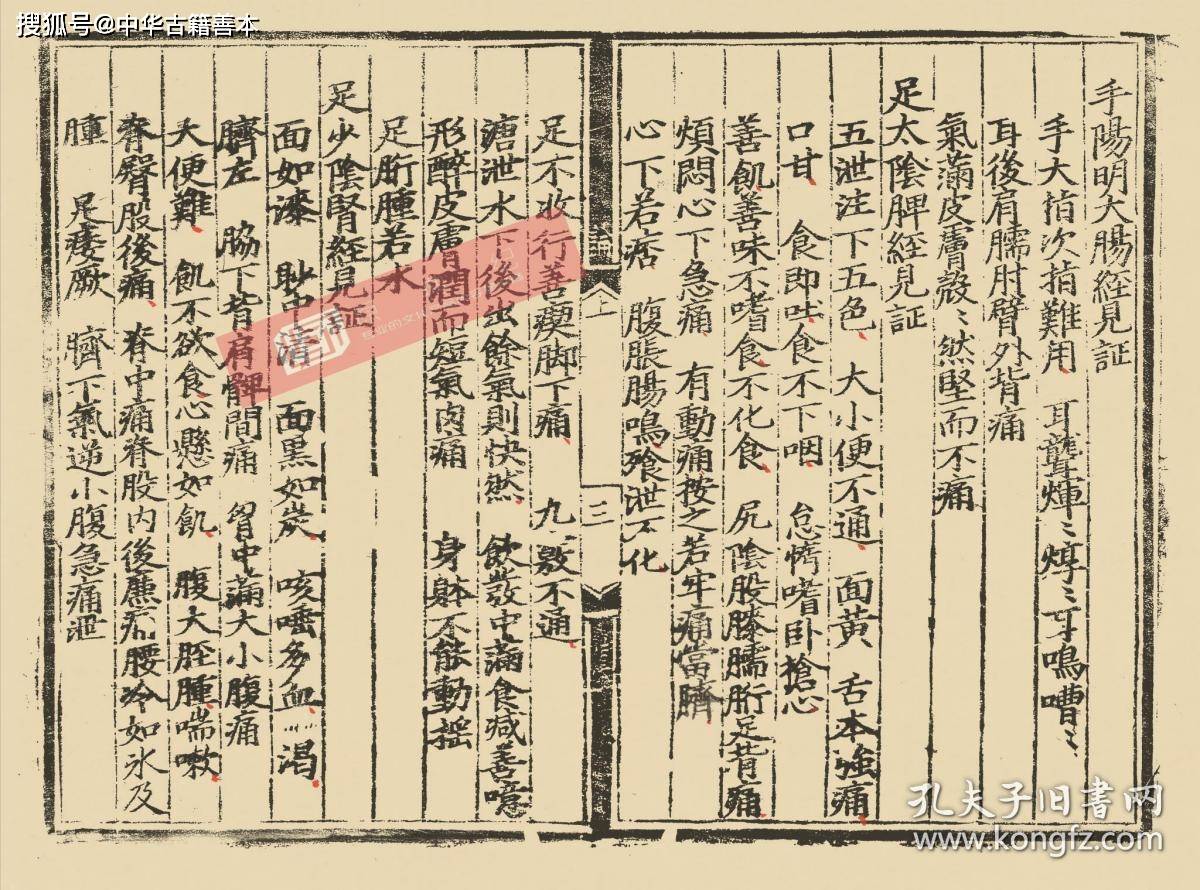 搜狐号@中华古籍善本
手陽明大腸經見証
手大指次指難用 耳聾煇〻焞〻耳鳴嘈〻
耳後肩臑肘臂外背痛
氣滿皮膚殼〻然堅而不痛
足太陰脾經見証
五泄注下五色 大小便不通 面黄 舌本強痛
口甘 食即吐食不下咽 怠惰嗜卧搶心
善飢善味不嗜食不化食 尻陰股膝臑胻足背痛
煩悶心下急痛 有動痛按之若牢痛當臍
心下若痞 腹脹腸鳴飱泄不化
足不收行善瘈脚下痛 九竅不通
溏泄水下後出餘氣則快然 飲發中滿食減善噫
形醉皮膚潤而短氣肉痛 身躰不能動摇
足胻腫若水
足少陰腎經見証
面如漆 眇中清 面黒如炭 咳唾多血 渴
臍左 脇下背肩髀間痛 胷中滿大小腹痛
大便難 飢不欲食心懸如飢 腹大脛腫喘嗽
脊臀股後痛 脊中痛脊股内後廉痛腰冷如氷及
腫 足痿厥 臍下氣逆小腹急痛泄
上
三
孔夫子旧书网
www.kongfz.com